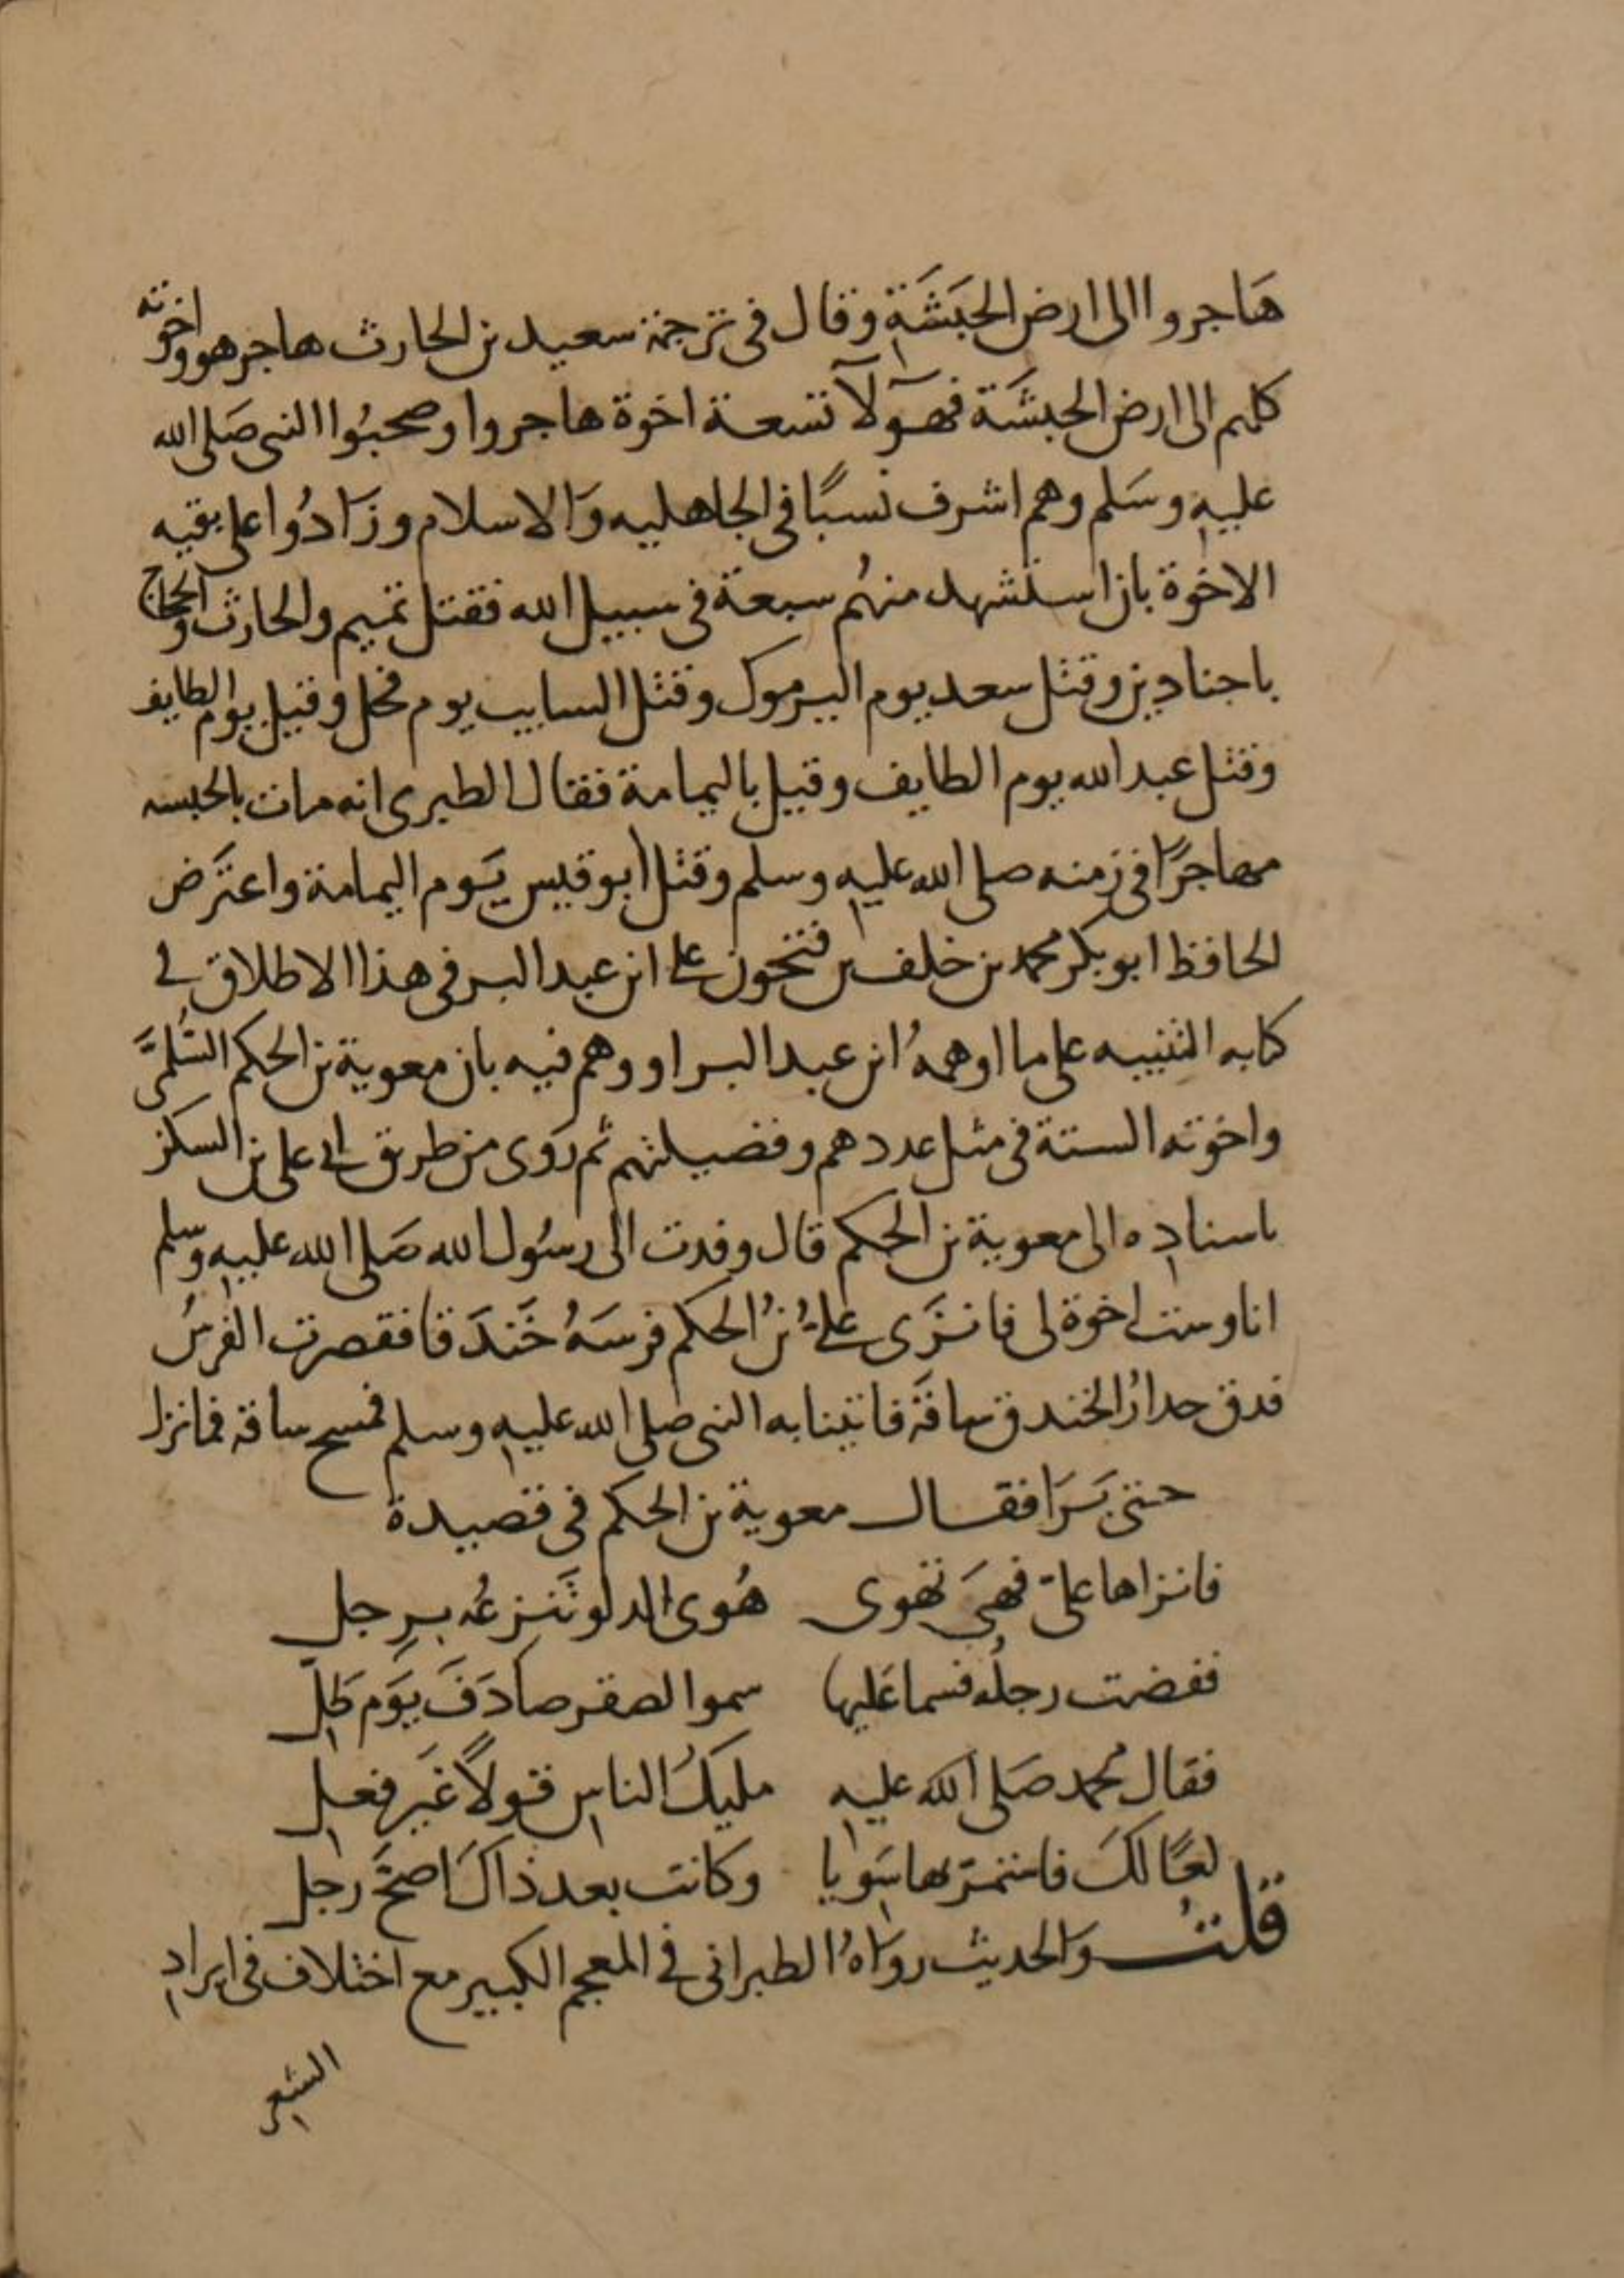 هَاجروا الى ارض الحَبَشَةِ وقال في ترجمة سعيد بن الحارث هاجر هو واخوته
كلهم الى ارض الحبشَة فهولآ تسعة اخوة هاجروا وصحبُوا النبي صَلى الله
عليه وسَلم وهم اشرف نسبًا في الجاهليه وَالاسلام وزَادُوا على بقيه
الاخوة بان استشهد منهُم سبعة في سبيل الله فقتل تميم والحارث والحجاج
باجنادين وقتل سعد يوم اليرموك وقتل السايب يوم فحل وقيل يوم الطايف
وقتل عبد الله يوم الطايف وقيل باليمامة فقال الطبرى انه مات بالحبسه
مهاجرًا في زمنه صلى الله عليه وسلم وقتل ابو قيس يَوم اليمامة واعترَض
الحافظ ابو بكر محمد بن خلف بن فتحون على ابن عبد البر في هذا الاطلاق في
كتابه التنبيه على ما اوهمهُ ابن عبد البر او وهم فيه بان معوية بن الحكم السُّلمىَّ
واخوته الستة في مثل عددهم وفضيلتهم ثم رَوى من طريق ابي على بن السكن
باسناده الى معوية بن الحكم قال وفدت الى رسُول الله صَلى الله عليه وسلم
انا وست اخوة لى فانزَى علىُّ بنُ الحكم فرسَهُ خَندَقا فقصرت الفرسُ
فدق جدارُ الخندق ساقَهُ فاتينا به النبي صلى الله عليه وسلم فمسح ساقه فما نزل
حتى بَرَا فقال معوية بن الحكم في قصيدة
فانزاها علىّ فهىَ تهوى هُوى الدلو تَنزعُه برِجل
ففضت رجلُه فسما عَليها سموا لصقر صادَفَ يَوَم ظِلّ
فقال محُمد صَلى اللَّه عليه مليكُ الناسِ قولاً غَير فعلِ
لعًا لكَ فاستمرّ بها سَوِيا وكانت بعد ذاكَ اصحَّ رجل
قلتُ وَالحديث روَاهُ الطبرانى في المعجم الكبير مع اختلاف في ايراد
الشعر